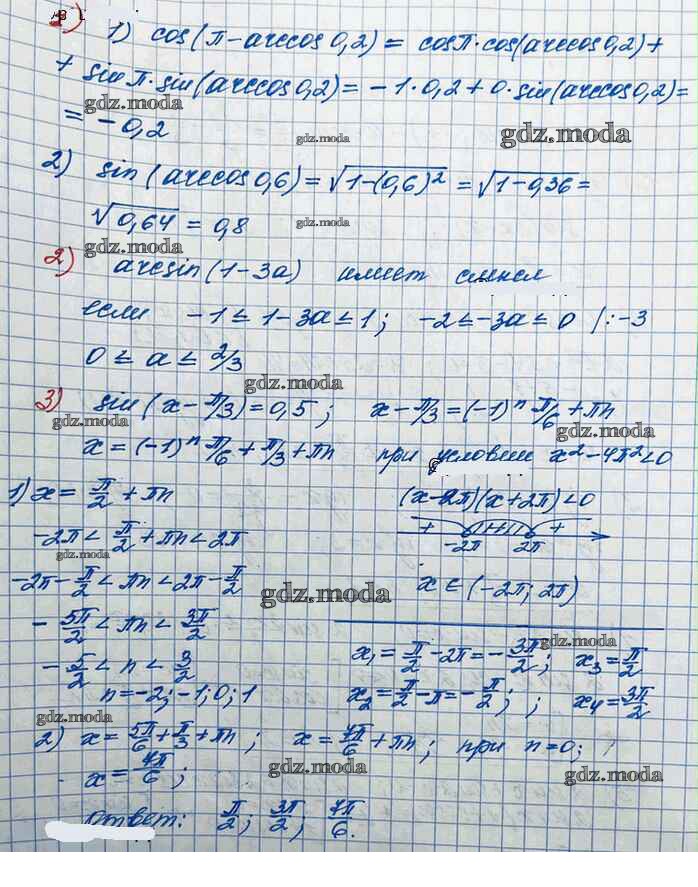 2)
1) cos(π-arccos 0,2) = cosπ·cos(arccos 0,2)+
+ sinπ·sin(arccos 0,2) = -1·0,2+0·sin(arccos 0,2)=
gdz.moda
= -0,2
gdz.moda
gdz.moda
2) sin(arccos 0,6) = √1-(0,6)² = √1-0,36 =
√0,64 = 0,8
gdz.moda
gdz.moda
2) arcsin(1-3a) имеет смысл
если -1 ≤ 1-3a ≤ 1; -2 ≤ -3a ≤ 0 /:-3
0 ≤ a ≤ 2/3
gdz.moda
3) sin(x-π/3) = 0,5; x-π/3 = (-1)ⁿ π/6 + πn
gdz.moda
gdz.moda
x = (-1)ⁿ π/6 + π/3 + πn при условии x²-4π²<0
1) x = π/2 + πn (x-2π)(x+2π)<0
-2π < π/2 + πn < 2π + + -2π 2π
gdz.moda
-2π - π/2 < πn < 2π - π/2 x ∈ (-2π; 2π)
gdz.moda
-5π/2 < πn < 3π/2
gdz.moda
-5/2 < n < 3/2 x₁ = π/2 - 2π = -3π/2; x₃ = π/2
n = -2; -1; 0; 1 x₂ = π/2 - π = -π/2; ; x₄ = 3π/2
gdz.moda
2) x = 5π/6 + π/3 + πn; x = 7π/6 + πn; при n=0;
x = 7π/6;
gdz.moda
gdz.moda
Ответ: π/2; 3π/2; 7π/6.